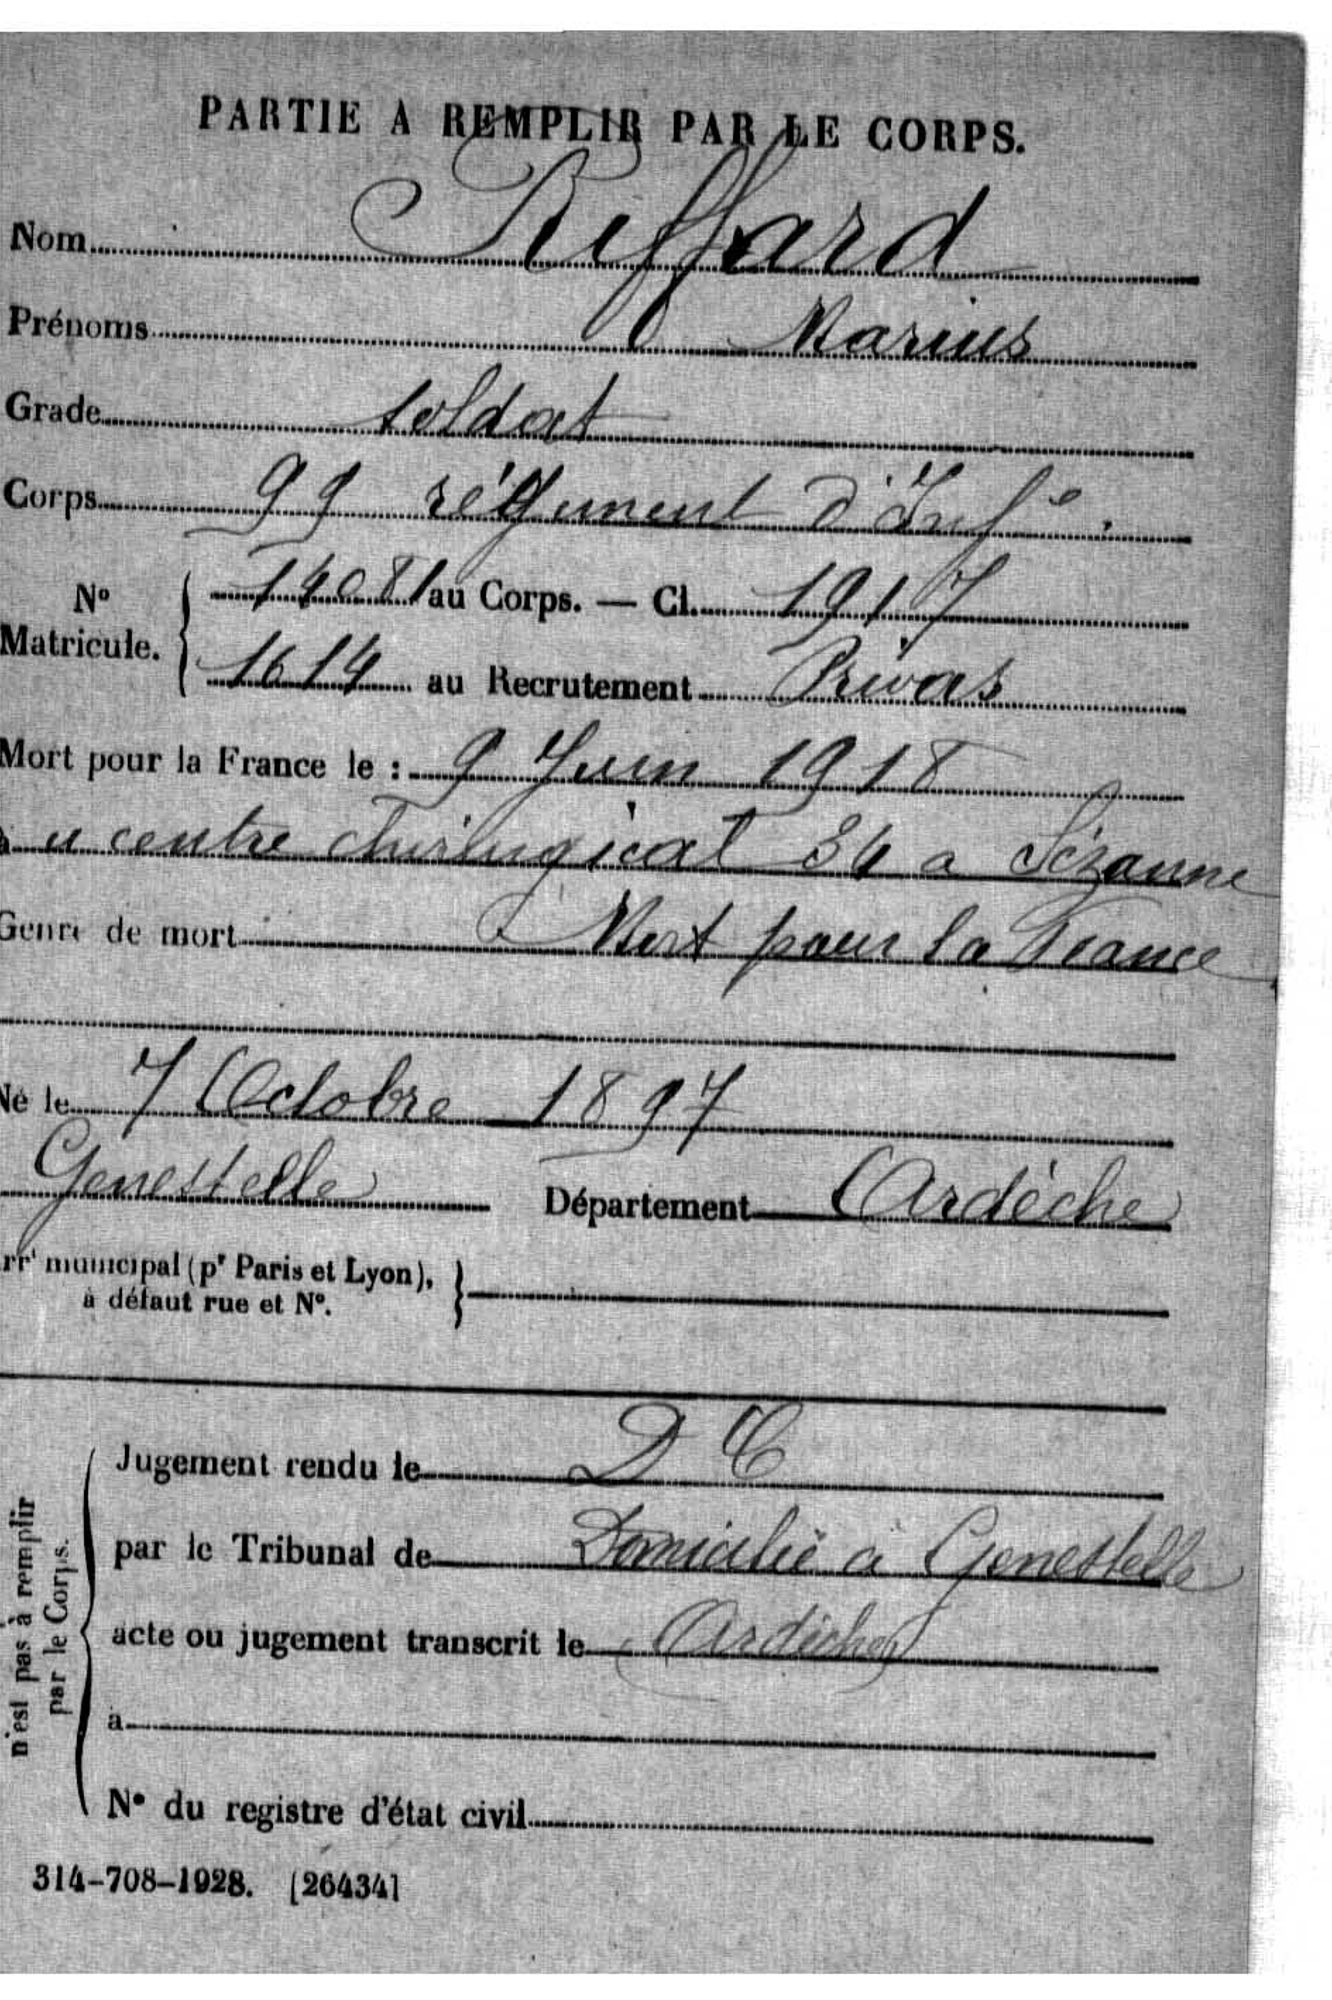 PARTIE A REMPLIR PAR LE CORPS.
Nom Riffard
Prénoms Marius
Grade soldat
Corps 99 régiment d'Infie.
No
Matricule.
14081 au Corps. — Cl. 1917
1614 au Recrutement Privas
Mort pour la France le : 9 Juin 1918
au centre chirurgical 34 a Sézanne
Genre de mort Mort pour la France
Né le 7 Octobre 1897
Genestelle Département Ardèche
rrt municipal (pr Paris et Lyon),
à défaut rue et No.
n'est pas à remplir
par le Corps.
Jugement rendu le D C
par le Tribunal de Domicilié à Genestelle
acte ou jugement transcrit le (Ardèche)
à
No du registre d'état civil
314-708-1928. [26434]